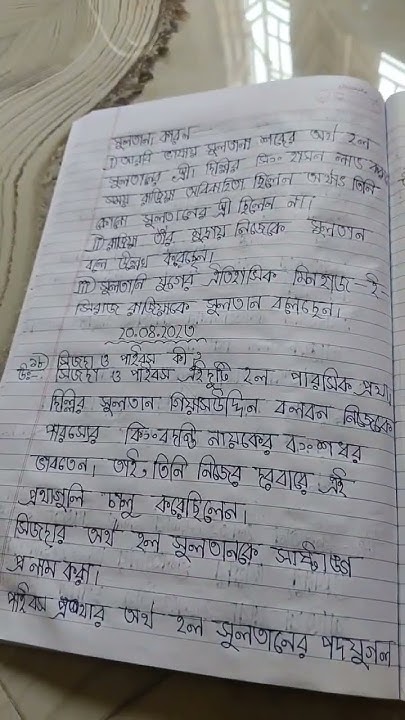 সুলতানা কারন
i) আরবি ভাষায় সুলতানা শব্দের অর্থ হল
সুলতানের স্ত্রী। দিল্লির সিংহাসন লাভ করার
সময় রাজিয়া অবিবাহিতা ছিলেন অর্থাৎ তিনি
কোনো সুলতানের স্ত্রী ছিলেন না।
ii) রাজিয়া তাঁর মুদ্রায় নিজেকে সুলতান
বলে উল্লেখ করেছেন।
iii) সুলতানি যুগের ঐতিহাসিক মিনহাজ-ই-
সিরাজ রাজিয়াকে সুলতান বলেছেন।
20.08.2023
১৮) সিজদা ও পাইবস কী?
উঃ- সিজদা ও পাইবস এই দুটি হল পারসিক প্রথা।
দিল্লীর সুলতান গিয়াসউদ্দিন বলবন নিজেকে
পারস্যের কিংবদন্তি নায়কের বংশধর
ভাবতেন। তাই তিনি নিজের দরবারে এই
প্রথাগুলি চালু করেছিলেন।
সিজদার অর্থ হল সুলতানকে সাষ্টাঙ্গে
প্রনাম করা।
পাইবস প্রথার অর্থ হল সুলতানের পদযুগল